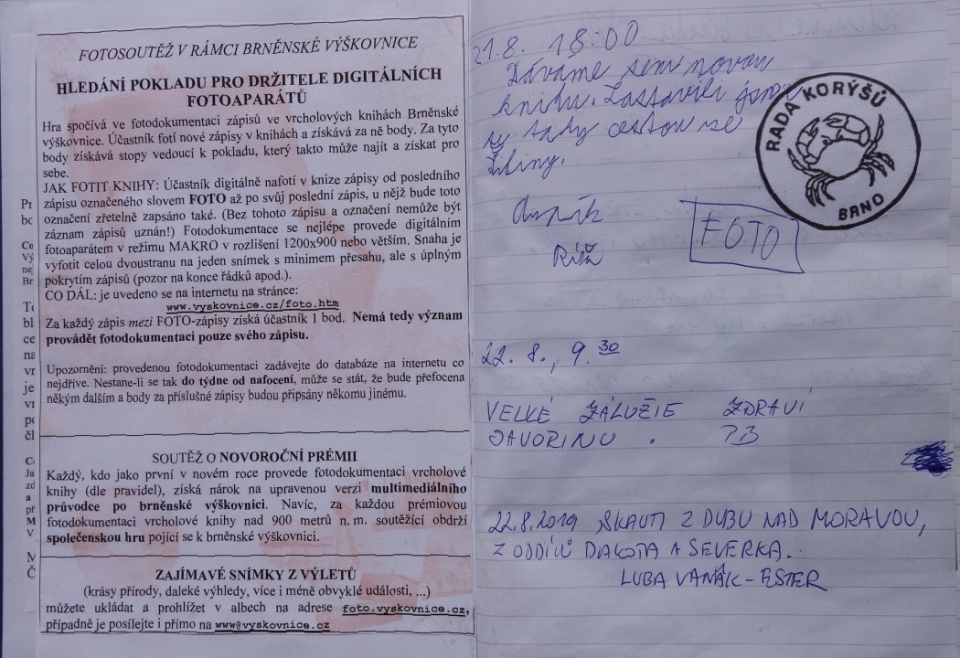 FOTOSOUTĚŽ V RÁMCI BRNĚNSKÉ VÝŠKOVNICE
HLEDÁNÍ POKLADU PRO DRŽITELE DIGITÁLNÍCH
FOTOAPARÁTŮ
Hra spočívá ve fotodokumentaci zápisů ve vrcholových knihách Brněnské
výškovnice. Účastník fotí nové zápisy v knihách a získává za ně body. Za tyto
body získává stopy vedoucí k pokladu, který takto může najít a získat pro
sebe.
JAK FOTIT KNIHY: Účastník digitálně nafotí v knize zápisy od posledního
zápisu označeného slovem FOTO až po svůj poslední zápis, u nějž bude toto
označení zřetelně zapsáno také. (Bez tohoto zápisu a označení nemůže být
záznam zápisů uznán!) Fotodokumentace se nejlépe provede digitálním
fotoaparátem v režimu MAKRO v rozlišení 1200x900 nebo větším. Snaha je
vyfotit celou dvoustranu na jeden snímek s minimem přesahu, ale s úplným
pokrytím zápisů (pozor na konce řádků apod.).
CO DÁL: je uvedeno se na internetu na stránce:
www.vyskovnice.cz/foto.htm
Za každý zápis mezi FOTO-zápisy získá účastník 1 bod. Nemá tedy význam
provádět fotodokumentaci pouze svého zápisu.
Upozornění: provedenou fotodokumentaci zadávejte do databáze na internetu co
nejdříve. Nestane-li se tak do týdne od nafocení, může se stát, že bude přefocena
někým dalším a body za příslušné zápisy budou připsány někomu jinému.
SOUTĚŽ O NOVOROČNÍ PRÉMII
Každý, kdo jako první v novém roce provede fotodokumentaci vrcholové
knihy (dle pravidel), získá nárok na upravenou verzi multimediálního
průvodce po brněnské výškovnici. Navíc, za každou prémiovou
fotodokumentaci vrcholové knihy nad 900 metrů n. m. soutěžící obdrží
společenskou hru pojící se k brněnské výškovnici.
ZAJÍMAVÉ SNÍMKY Z VÝLETŮ
(krásy přírody, daleké výhledy, více i méně obvyklé události, ...)
můžete ukládat a prohlížet v albech na adrese foto.vyskovnice.cz,
případně je posílejte i přímo na www@vyskovnice.cz
21.8. 18:00
Dáváme sem novou
knihu. Zastavili jsme
se tady cestou ze
Žiliny.
RADA KORÝŠŮ
BRNO
FOTO
22.8., 9.30
VELKÉ ZÁLUŽIE ZDRAVÍ
JAVORINU.
22.8.2019 SKAUTI Z DUBU NAD MORAVOU,
Z ODDÍLŮ DAKOTA A SEVERKA.
LUBA VAŇÁK - ESTER